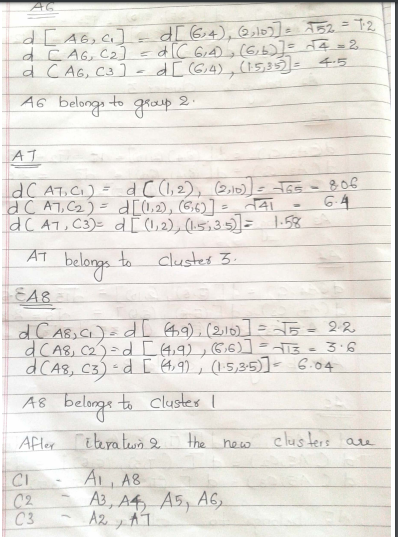 A6
d[A6, C1] = d[(6,4), (2,10)] = √52 = 7.2
d[A6, C2] = d[(6,4), (6,6)] = √4 = 2
d(A6, C3) = d[(6,4), (1.5,3.5)] = 4.5
A6 belongs to group 2.
A7
d(A7, C1) = d[(1,2), (2,10)] = √65 = 8.06
d(A7, C2) = d[(1,2), (6,6)] = √41 = 6.4
d(A7, C3) = d[(1,2), (1.5,3.5)] = 1.58
A7 belongs to cluster 3.
A8
d(A8, C1) = d[(4,9), (2,10)] = √5 = 2.2
d(A8, C2) = d[(4,9), (6,6)] = √13 = 3.6
d(A8, C3) = d[(4,9), (1.5,3.5)] = 6.04
A8 belongs to Cluster 1
After iteration 2 the new clusters are
C1 - A1, A8
C2 - A3, A4, A5, A6,
C3 - A2, A7